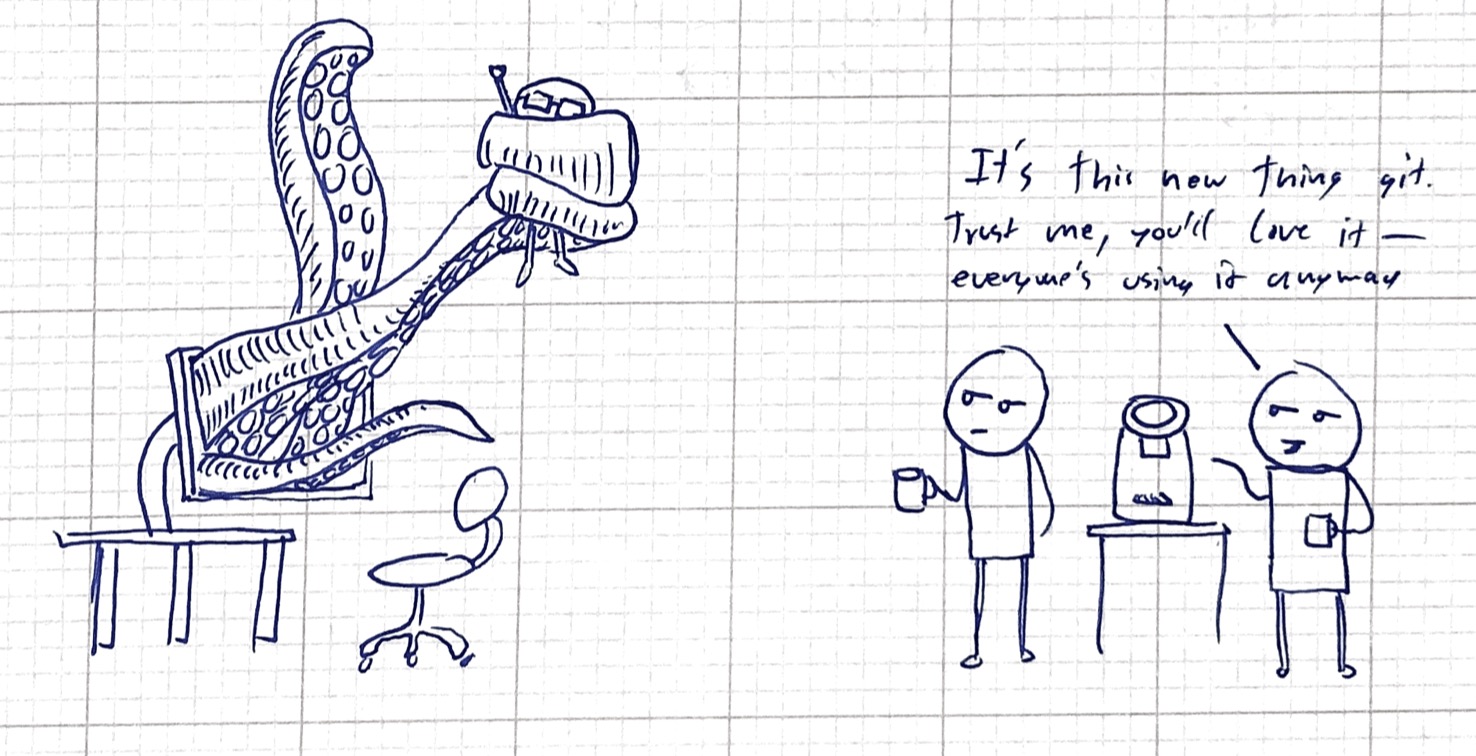 It's this new thing git.
Trust me, you'll love it —
everyone's using it anyway